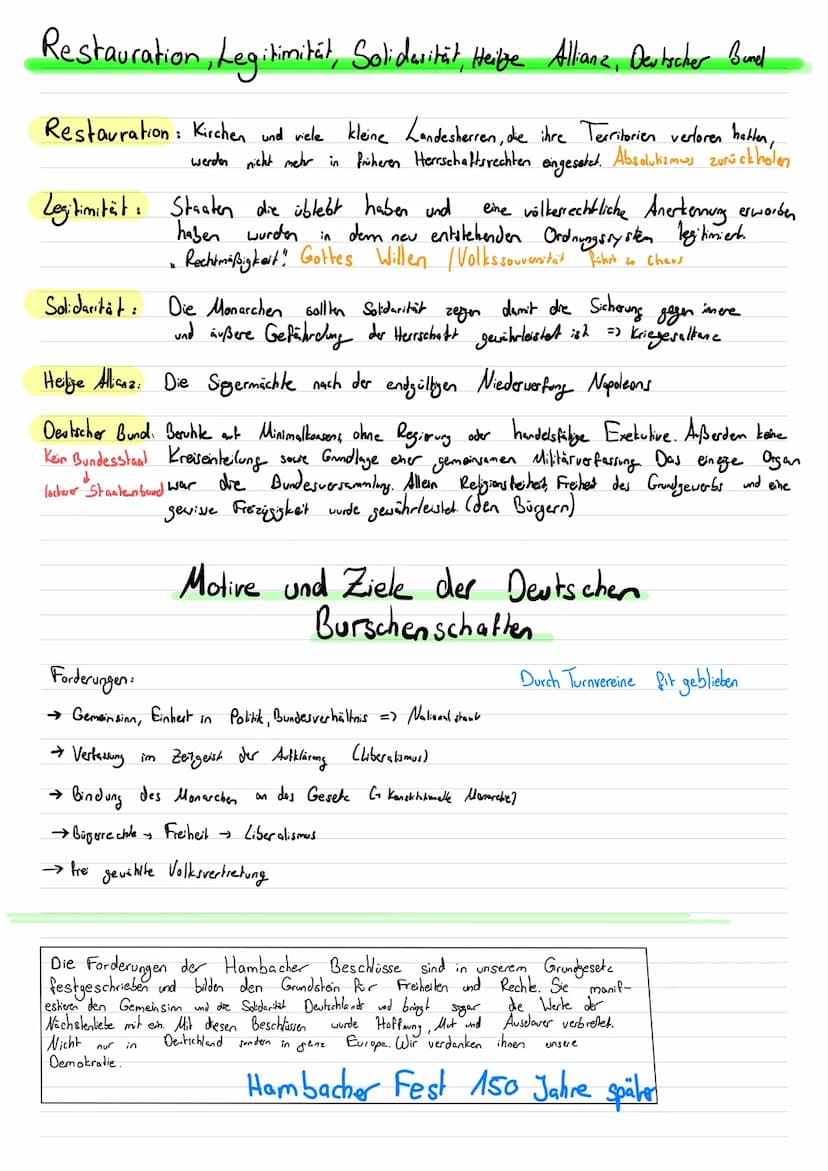 Restauration, Legitimität, Solidarität, Heilge Allianz, Deutscher Bund
Restauration: Kirchen und viele kleine Landesherren, die ihre Territorien verloren hatten,
werden nicht mehr in früheren Herrschaftsrechten eingesetzt. Absolutismus zurückholen
Legitimität: Staaten die üblebt haben und eine völkerrechtliche Anerkennung erworben
haben wurden in dem neu entstehenden Ordnungssystem legitimiert.
"Rechtmäßigkeit" Gottes Willen / Volkssouveränität führt zu Chaos
Solidarität: Die Monarchen sollten Solidarität zegen damit die Sicherung gegen innere
und äußere Gefährdung der Herrschaft gewährleistet ist => Kriegesallianz
Heilge Allianz: Die Siegermächte nach der endgültigen Niederwerfung Napoleons
Deutscher Bund: Beruhte auf Minimalkonsens, ohne Regierung oder handelsfähige Exekutive. Außerdem keine
Kein Bundesstaat Kreiseinteilung sowie Grundlage einer gemeinsamen Militärverfassung. Das einzige Organ
lockerer Staatenbund war die Bundesversammlung. Allein Religionsfreiheit, Freiheit des Grundgewerbs und eine
gewisse Freizügigkeit wurde gewährleistet. (den Bürgern)
Motive und Ziele der Deutschen
Burschenschaften
Forderungen: Durch Turnvereine fit geblieben
→ Gemeinsinn, Einheit in Politik, Bundesverhältnis => Nationalstaat
→ Verfassung im Zeitgeist der Aufklärung (Liberalismus)
→ Bindung des Monarchen an das Gesetz (→ Konstitutionelle Monarchie)
→ Bürgerrechte → Freiheit → Liberalismus
→ frei gewählte Volksvertretung
Die Forderungen der Hambacher Beschlüsse sind in unserem Grundgesetz
festgeschrieben und bilden den Grundstein für Freiheiten und Rechte. Sie manif-
estieren den Gemeinsinn und die Solidarität Deutschlands und bringt sogar die Werte der
Nächstenliebe mit ein. Mit diesen Beschlüssen wurde Hoffnung, Mut und Ausdauer verbreitet.
Nicht nur in Deutschland sondern in ganz Europa. Wir verdanken ihnen unsere
Demokratie.
Hambacher Fest 150 Jahre später